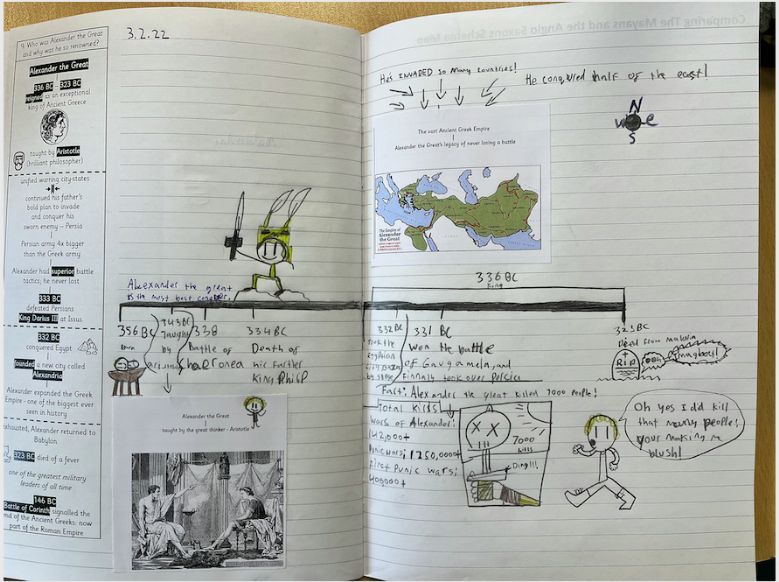 9. Who was Alexander the Great
and why was he so renowned?
Alexander the Great
336 BC 323 BC
reigned as an exceptional
king of Ancient Greece
taught by Aristotle
(brilliant philosopher)
unified warring city-states
continued his father's
bold plan to invade
and conquer his
sworn enemy – Persia
Persian army 4x bigger
than the Greek army
Alexander had superior battle
tactics; he never lost
333 BC
defeated Persians
King Darius III at Issus
332 BC
conquered Egypt
founded a new city called
Alexandria
Alexander expanded the Greek
Empire - one of the biggest ever
seen in history
exhausted, Alexander returned to
Babylon
323 BC died of a fever
one of the greatest military
leaders of all time
146 BC
Battle of Corinth signalled the
end of the Ancient Greeks: now
part of the Roman Empire
3.2.22
Alexander the great
is the most best
356 BC
Born
343 BC
Taught
by
338
Battle of
Chaeronea
334 BC
Death of
his Farther
King Philip
Alexander the Great
taught by the great thinker - Aristotle
Comparing The Mayans and the Anglo Saxons Schema Map
He's INVADED SO Many Countries!
He conquered half of the east!
N
W e
S
The vast Ancient Greek Empire
Alexander the Great's legacy of never losing a battle
The Empire of
Alexander the Great
336 BC
King
332 BC
331
won the battle
of Gaugamela, and
Finnaly took over Persia
323 BC
Dead from malaria
RIP
maggots!
Fact: Alexander the great killed 7000 people!
Total Kills:
Wars of Alexander:
142,000+
Punic wars: 1250,000+
First Punic Wars:
400,000+
7000
kills
Ding!!!
Oh yes I did kill
that many people!
your making me
blush!